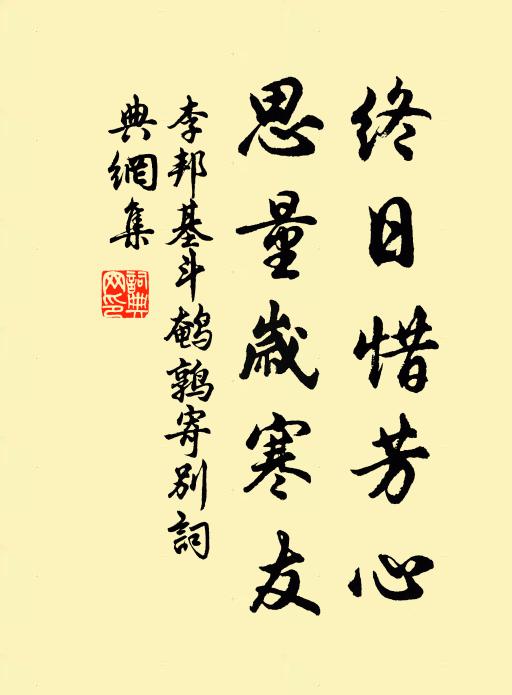 終日惜芳心
思量歲寒友
李邦基斗鵪鶉寄別詞
典網集
詞典網印